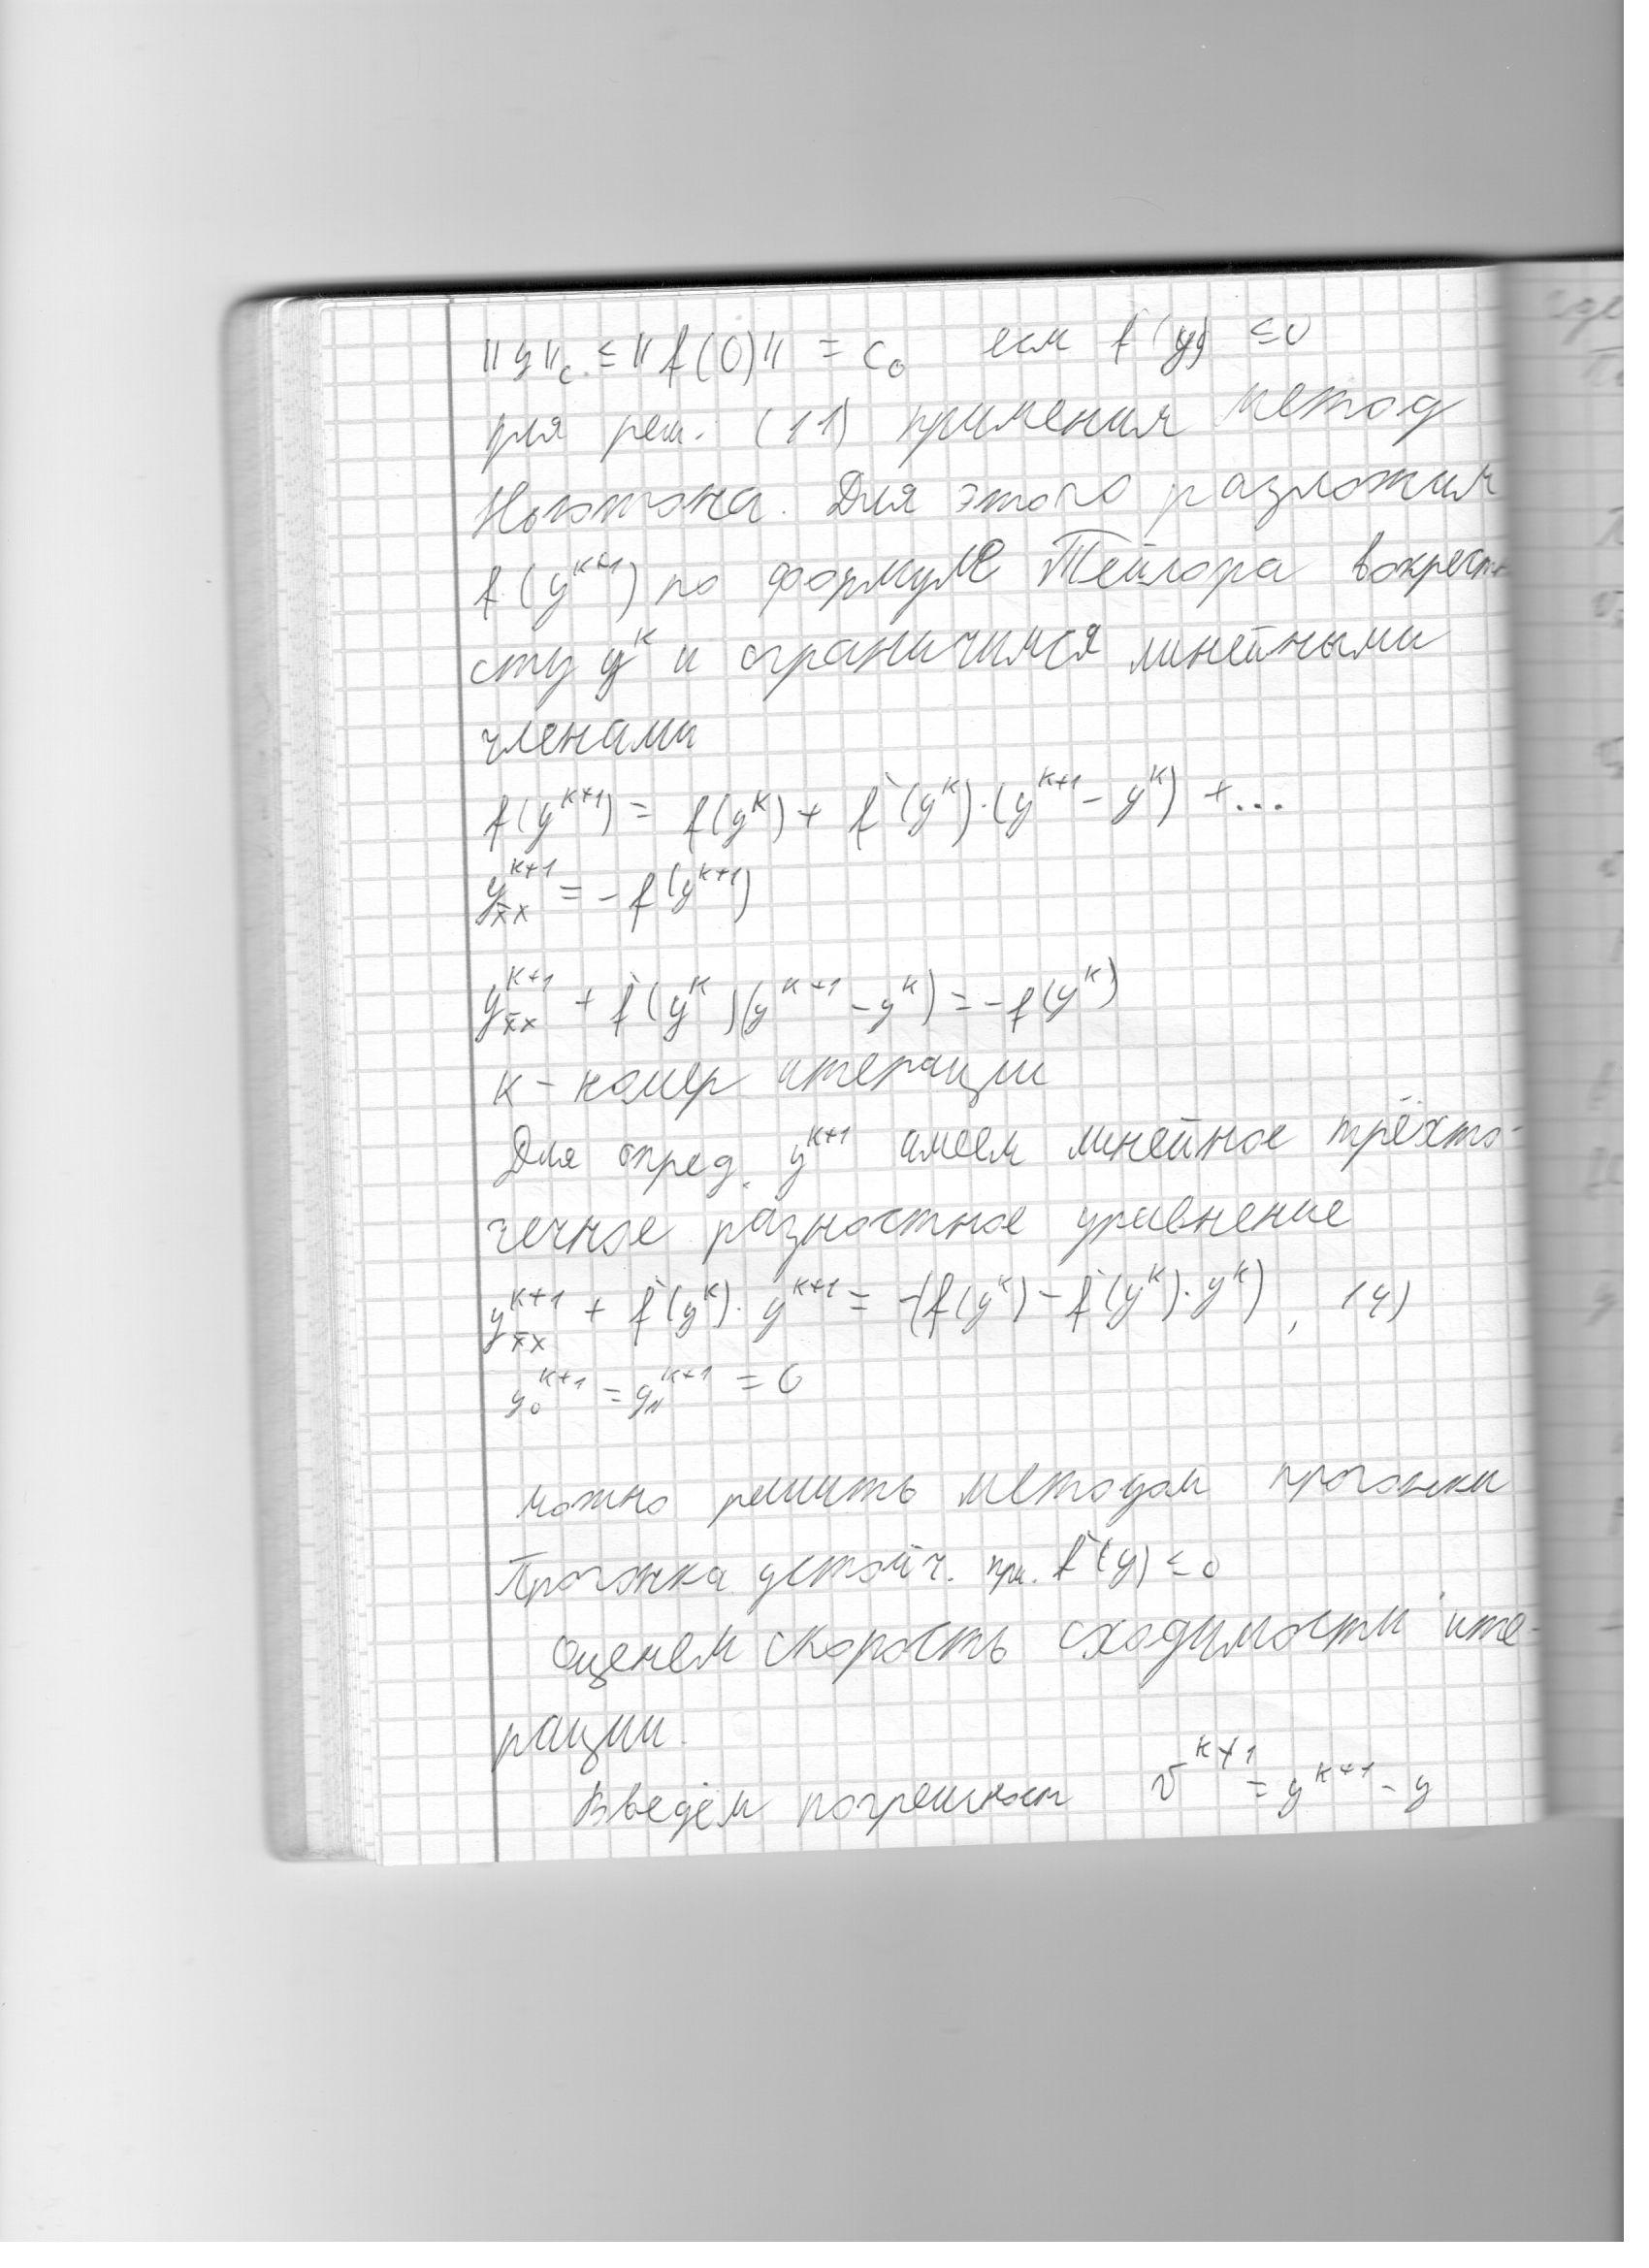 ||y||_c ≤ ||f(0)|| = c₀ если f'(y) ≤ 0
для реш. (11) применим метод
Ньютона. Для этого разложим
f(y^{k+1}) по формуле Тейлора вокрестн
сту y^k и ограничимся линейными
членами
f(y^{k+1}) = f(y^k) + f'(y^k)·(y^{k+1} - y^k) + ...
y^{k+1}_{x̄x} = -f(y^{k+1})
y^{k+1}_{x̄x} + f'(y^k)(y^{k+1} - y^k) = -f(y^k)
k - номер итерации
Для опред. y^{k+1} имеем линейное трёхто-
чечное разностное уравнение
y^{k+1}_{x̄x} + f'(y^k)·y^{k+1} = -(f(y^k) - f'(y^k)·y^k), (4)
y₀^{k+1} = y_N^{k+1} = 0
можно решить методом прогонки
Прогонка устойч. при. f'(y) ≤ 0
Оценем скорость сходимости ите-
рации.
Введём погрешност v^{k+1} = y^{k+1} - y